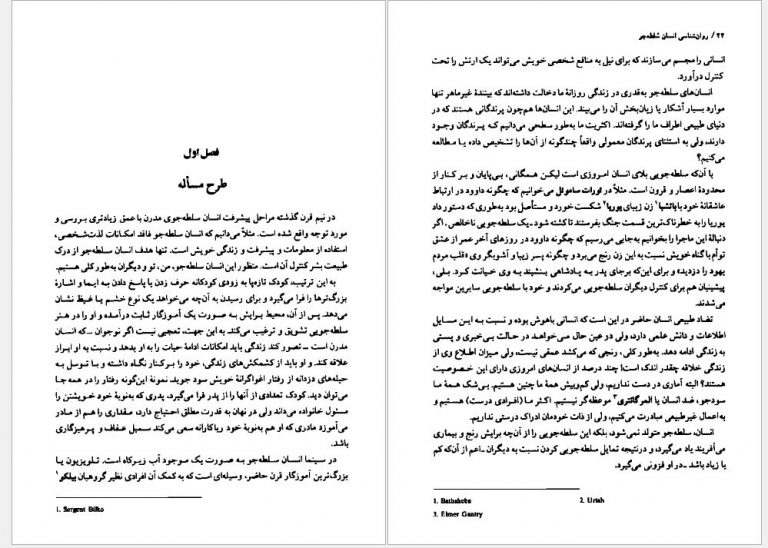 فصل اول
طرح مسأله
در نیم قرن گذشته مراحل پیشرفت انسان سلطه‌جوی مدرن با عمق زیادتری بررسی و
مورد توجه واقع شده است. مثلاً می‌دانیم که انسان سلطه‌جو فاقد امکانات لذت‌شخصی،
استفاده از معلومات و پیشرفت و زندگی خویش است. تنها هدف انسان سلطه‌جو از درک
طبیعت بشر کنترل آن است. منظور این انسان سلطه‌جو، من، تو و دیگران به‌طور کلی هستیم.
به این ترتیب، کودک تازه‌پا به زودی کودکانه حرف زدن یا پاسخ دادن به ایما و اشارهٔ
بزرگ‌ترها را فرا می‌گیرد و برای رسیدن به آن‌چه می‌خواهد یک نوع خشم یا غیظ نشان
می‌دهد. پس از آن، محیط برایش به صورت یک آموزگار ثابت درآمده و او را در هنر
سلطه‌جویی تشویق و ترغیب می‌کند. به این جهت، تعجبی نیست اگر نوجوان ــ که انسان
مدرن است ــ تصور کند زندگی باید امکانات ادامهٔ حیات را به او بدهد و نسبت به او ابراز
علاقه کند. و او باید از کشمکش‌های زندگی، خود را برکنار نگاه داشته و با توسل به
حیله‌های دزدانه از رفتار اغواگرانهٔ خویش سود جوید. نمونهٔ این‌گونه رفتار را در همه جا
می‌توان دید. کودک تعدادی از آنها را از پدر فرا می‌گیرد، پدری که به‌نوبهٔ خود خویشتن را
مسئول خانواده می‌داند ولی در نهان به قدرت مطلق احتیاج دارد، مقداری را هم از مادر
می‌آموزد مادری که او هم به‌نوبهٔ خود ریاکارانه سعی می‌کند سمبل عفاف و پرهیزگاری
باشد.
در سینما انسان سلطه‌جو به صورت یک موجود آب زیرکاه است. تلویزیون یا
بزرگ‌ترین آموزگار قرن حاضر، وسیله‌ای است که به کمک آن افرادی نظیر گروهبان بیلکو¹
1. Sergent Bilko
۲۲ / روان‌شناسی انسان سلطه‌جو
انسانی را مجسم می‌سازند که برای نیل به منافع شخصی خویش می‌تواند یک ارتش را تحت
کنترل درآورد.
انسان‌های سلطه‌جو به‌قدری در زندگی روزانهٔ ما دخالت داشته‌اند که بینندهٔ غیرماهر تنها
موارد بسیار آشکار یا زیان‌بخش آن را می‌بیند. این انسان‌ها هم‌چون پرندگانی هستند که در
دنیای طبیعی اطراف ما را گرفته‌اند. اکثریت ما به‌طور سطحی می‌دانیم که پرندگان وجود
دارند، ولی به استثنای پرندگان معمولی واقعاً چندگونه از آن‌ها را تشخیص داده یا مطالعه
می‌کنیم؟
با آن‌که سلطه‌جویی بلای انسان امروزی است لیکن همگانی، بی‌پایان و بر کنار از
محدودهٔ اعصار و قرون است. مثلاً در تورات ساموئل می‌خوانیم که چگونه داوود در ارتباط
عاشقانهٔ خود با باتشبا¹ زن زیبای یوریا² شکست خورد و مستأصل بود به‌طوری که دستور داد
یوریا را به خطرناک‌ترین قسمت جنگ بفرستند تا کشته شود ــ یک سلطه‌جویی ناخالص. اگر
دنبالهٔ این ماجرا را بخوانیم به‌جایی می‌رسیم که چگونه داوود در روزهای آخر عمر از عشق
توأم با گناه خویش نسبت به این زن رنج می‌برد و چگونه پسر زیبا و آشوبگر وی «قلب مردم
یهود را دزدید» و برای این‌که برجای پدر به پادشاهی بنشیند به وی خیانت کرد. بلی،
پیشینیان هم برای کنترل دیگران سلطه‌جویی می‌کردند و خود با سلطه‌جویی سایرین مواجه
می‌شدند.
تضاد طبیعی انسان حاضر در این است که انسانی باهوش بوده و نسبت به این مسایل
اطلاعات و دانش علمی دارد، ولی در عین حال می‌خواهد در حالت بی‌خبری و پستی
به زندگی ادامه دهد. به‌طور کلی، رنجی که می‌کشد عمقی نیست، ولی میزان اطلاع وی از
زندگی خلاقه چقدر اندک است! چند درصد از انسان‌های امروزی دارای این خصوصیت
هستند؟ البته آماری در دست نداریم، ولی کم‌وبیش همهٔ ما چنین هستیم. بی‌شک همهٔ ما
سودجو، ضد انسان یا المر گانتری³ موعظه‌گر نیستیم. اکثر ما (افرادی درست) هستیم و
به اعمال غیرطبیعی مبادرت می‌کنیم، ولی از ذات خودمان ادراک درستی نداریم.
انسان، سلطه‌جو متولد نمی‌شود، بلکه این سلطه‌جویی را از آن‌چه برایش رنج و بیماری
می‌آفریند یاد می‌گیرد، و درنتیجه تمایل سلطه‌جویی کردن نسبت به دیگران ــ اعم از آن‌که کم
یا زیاد باشد ــ در او فزونی می‌گیرد.
1. Bathsheba 2. Uriah
3. Elmer Gantry